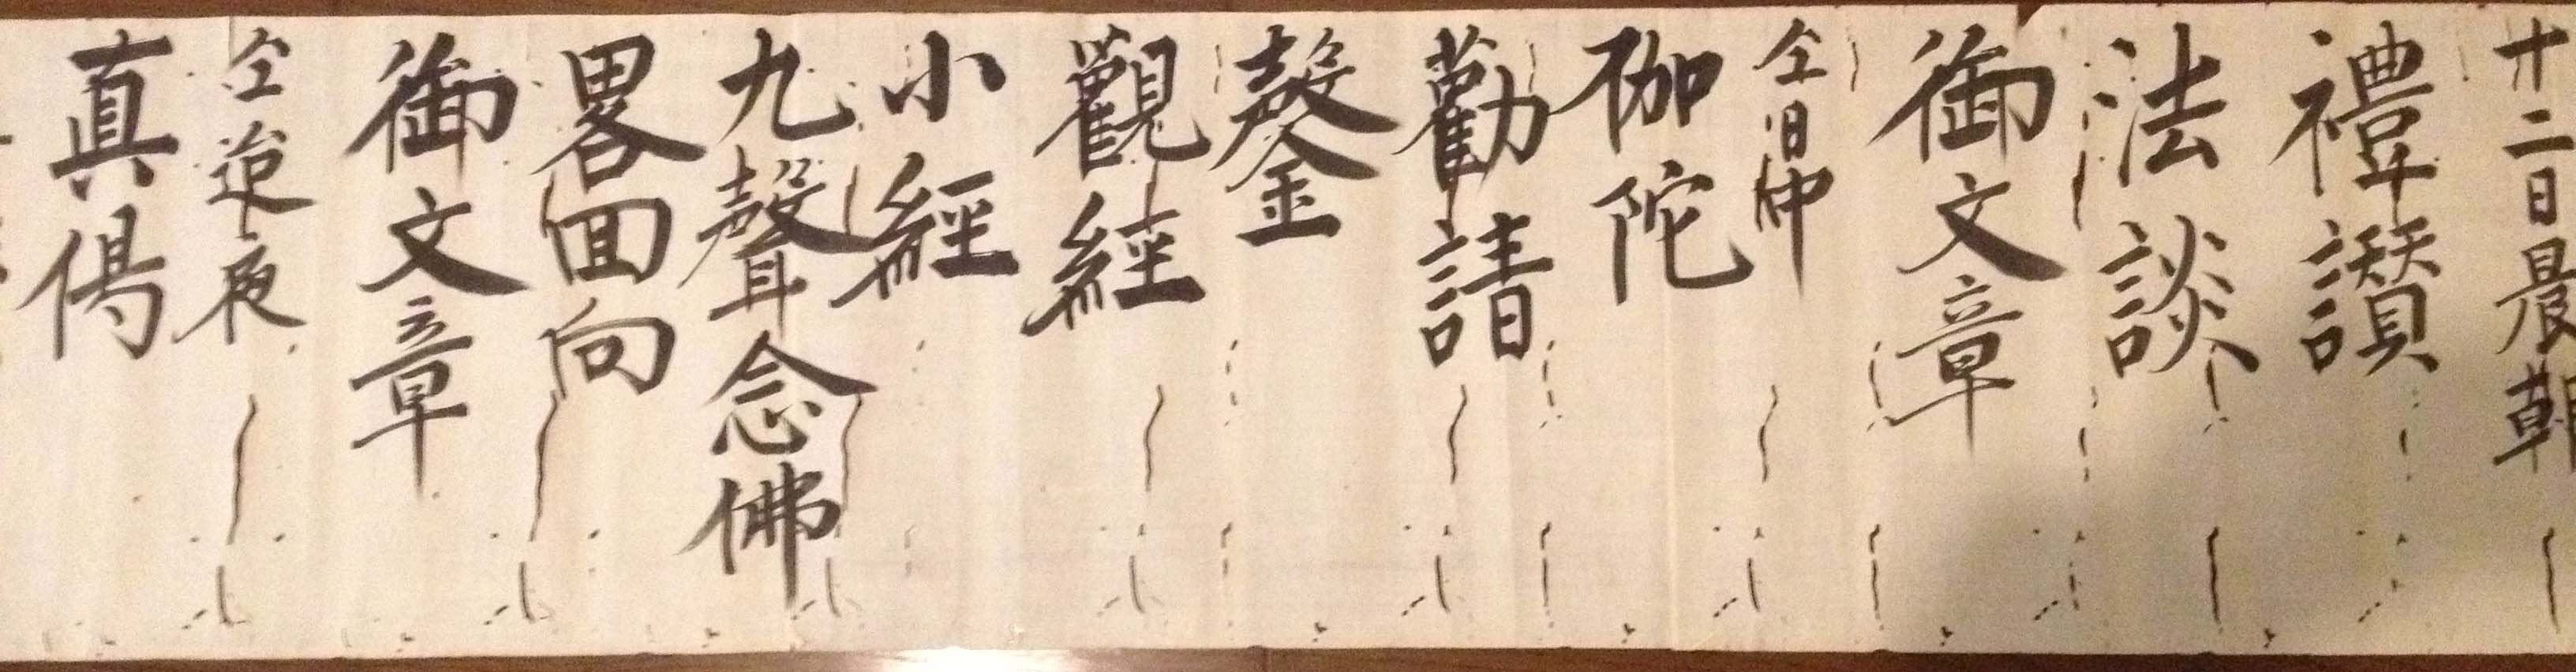 十二日晨朝
禮讃
法談
御文章
仝日中
伽陀
勸請
鏧
觀經
小經
九聲念佛
畧回向
御文章
仝迨夜
真偈